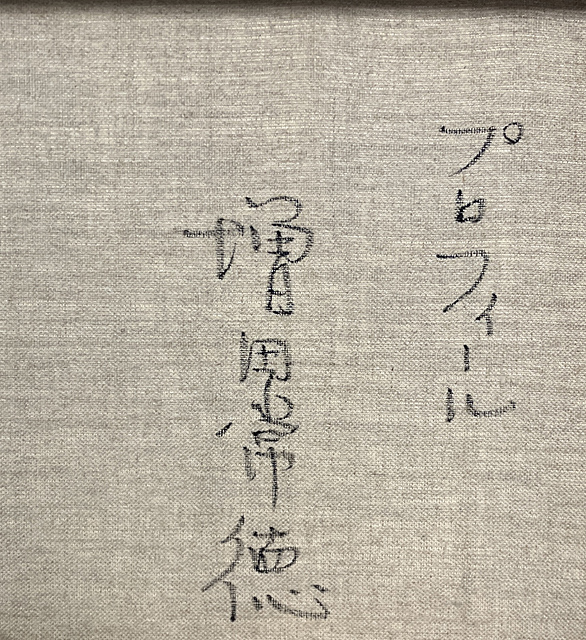 プロフィール
増田常徳